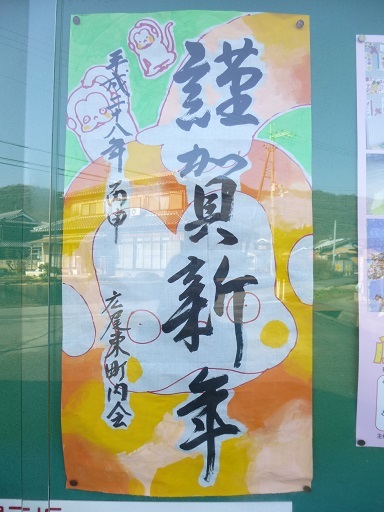 謹賀新年
平成二十八年 丙申
広屋東町内会